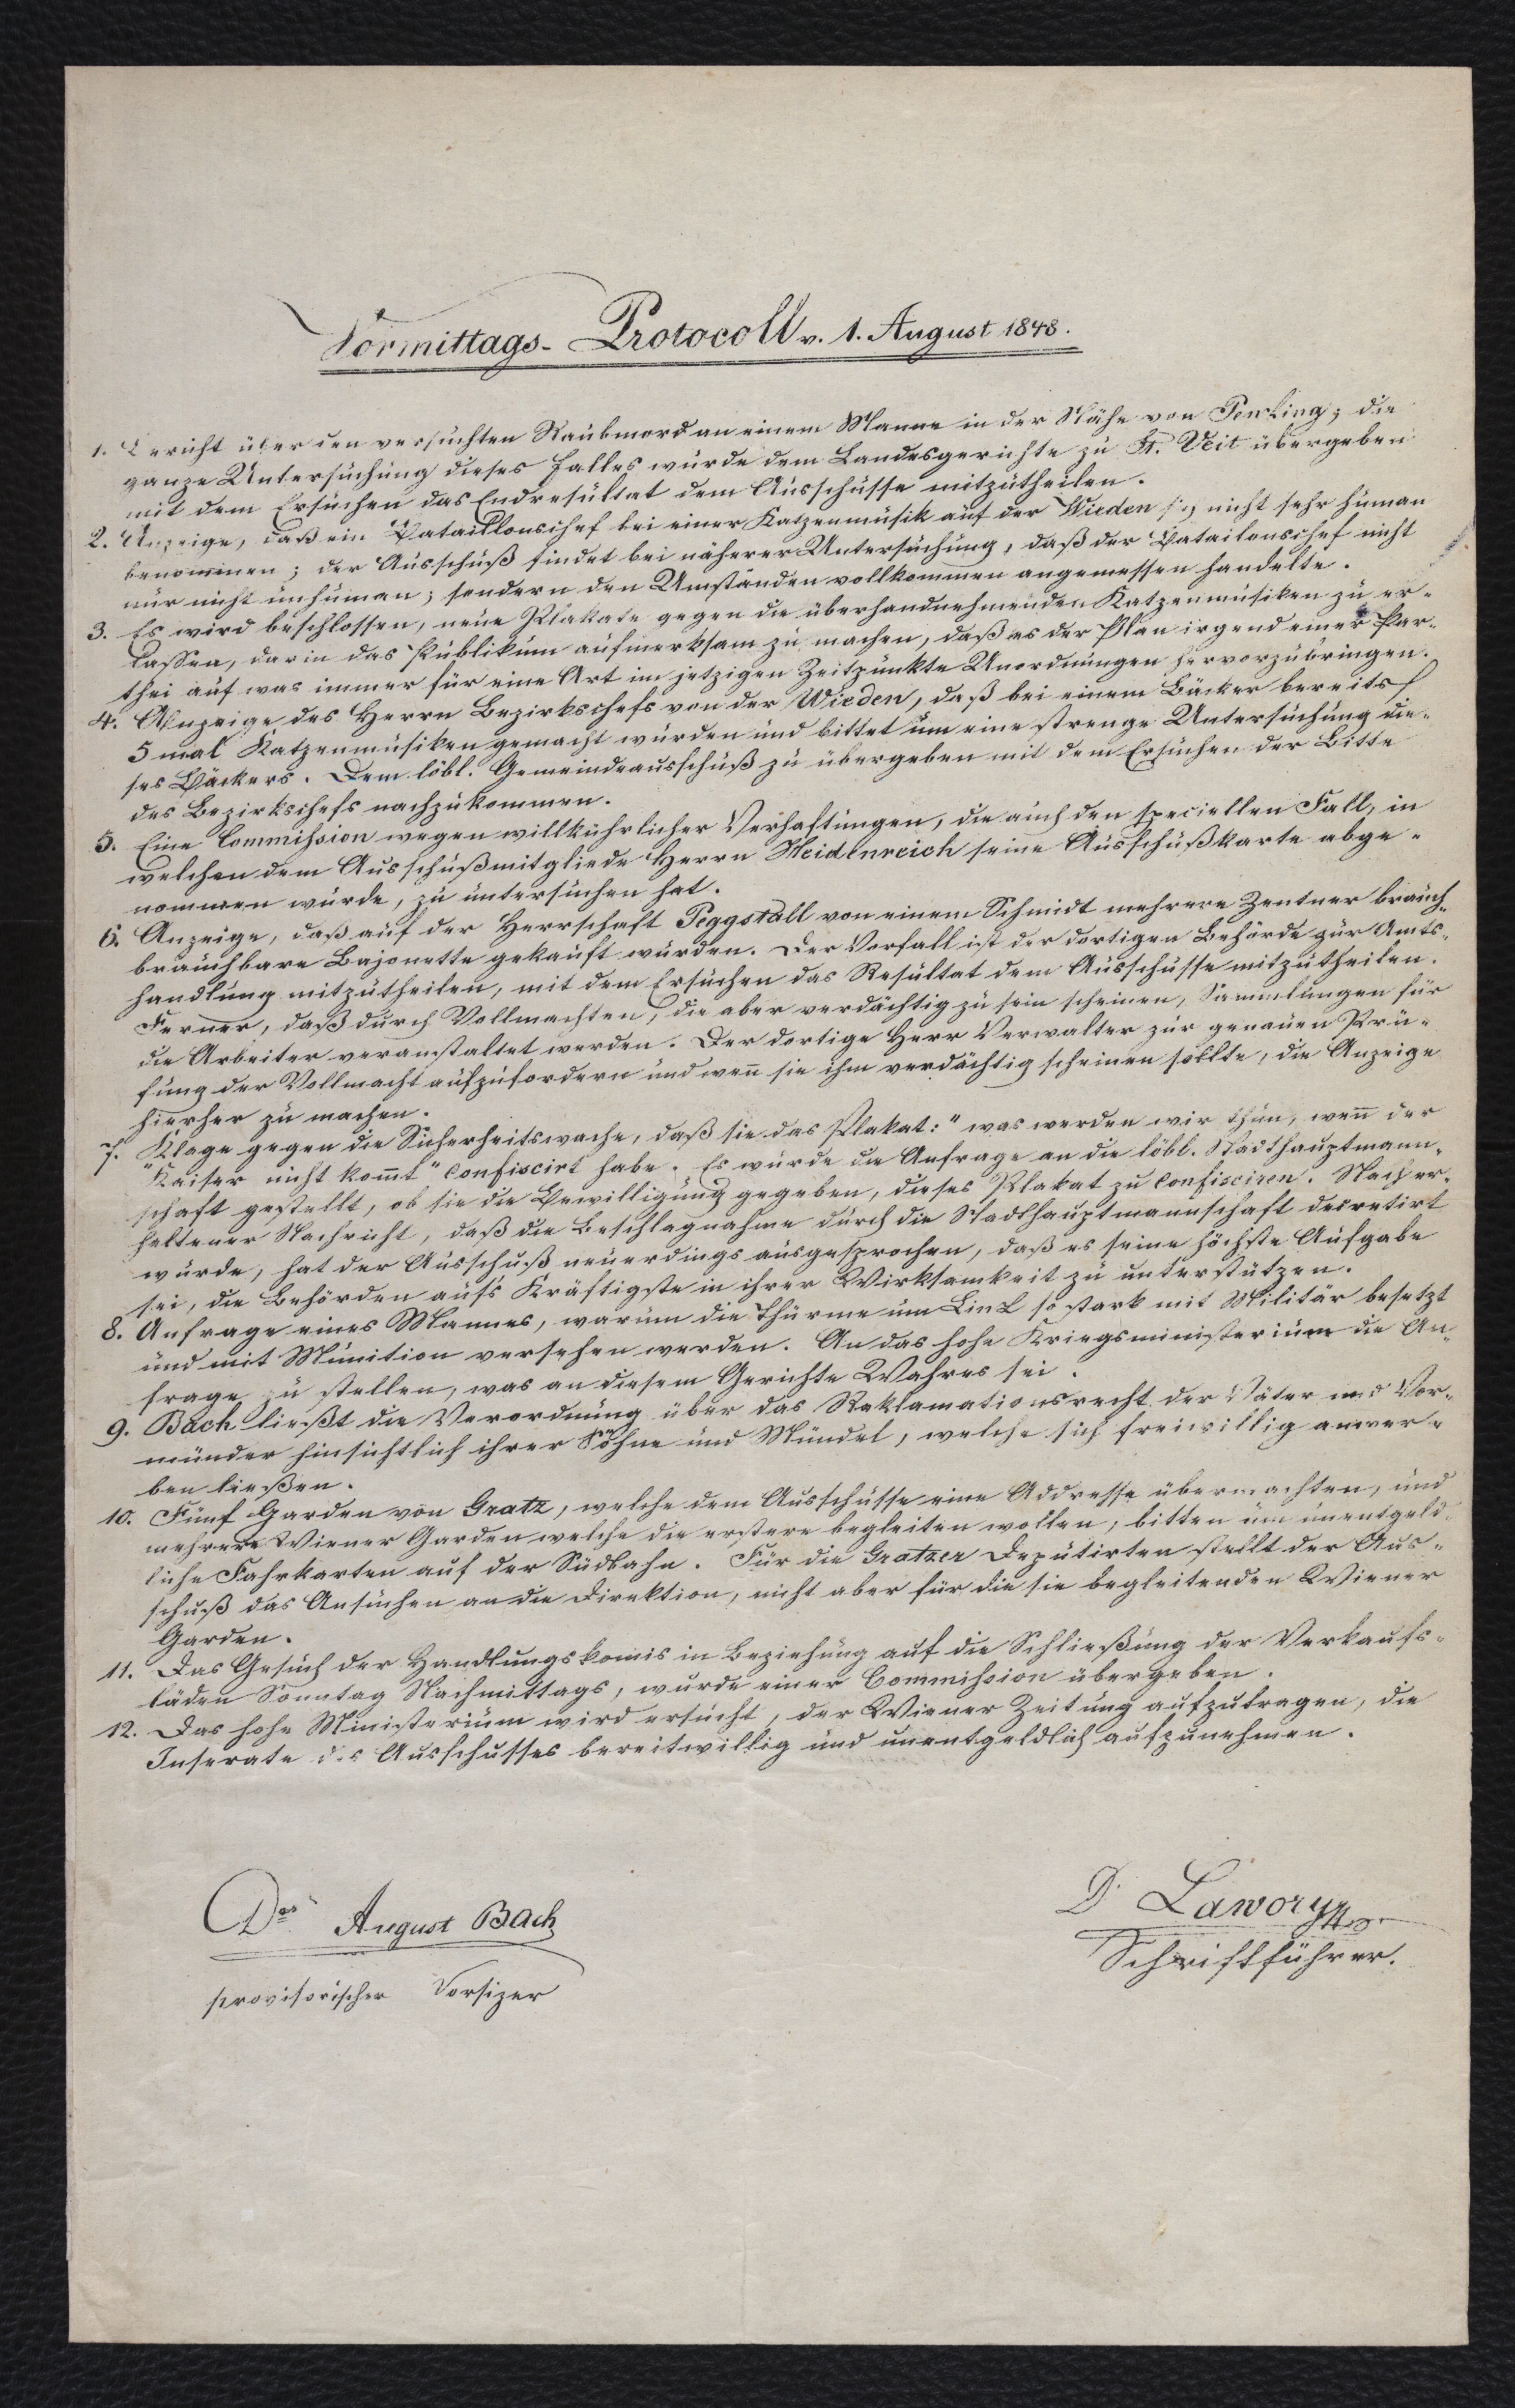 Vormittags-Protocoll v. 1. August 1848.
1. Bericht über den versuchten Raubmord an einem Manne in der Nähe von Penking; die
ganze Untersuchung dieses Falles wurde dem Landesgerichte zu St. Veit übergeben
mit dem Ersuchen das Endresultat dem Ausschusse mitzutheilen.
2. Anzeige, daß ein Bataillonschef bei einer Katzenmusik auf der Wieden sich nicht sehr human
benommen; der Ausschuß findet bei näherer Untersuchung, daß der Batailonschef nicht
nur nicht inhuman; sondern den Umständen vollkommen angemessen handelte.
3. Es wird beschlossen, neue Plakate gegen die überhandnehmenden Katzenmusiken zu er-
lassen, darin das Publikum aufmerksam zu machen, daß es der Plan irgend einer Par-
thei auf was immer für eine Art im jetzigen Zeitpunkte Unordnungen hervorzubringen.
4. Anzeige des Herrn Bezirkschefs von der Wieden, daß bei einem Bäcker bereits
5 mal Katzenmusiken gemacht wurden und bittet um eine strenge Untersuchung die-
ses Bäckers. Dem löbl. Gemeindeausschuß zu übergeben mit dem Ersuchen der Bitte
des Bezirkschefs nachzukommen.
5. Eine Commission wegen willkührlicher Verhaftungen, die auch den speciellen Fall, in
welchen dem Ausschußmitgliede Herrn Heidenreich seine Ausschußkarte abge-
nommen wurde, zu untersuchen hat.
6. Anzeige, daß auf der Herrschaft Peggstall von einem Schmidt mehrere Zentner brauch-
brauchbare Bajonette gekauft wurden. Der Vorfall ist der dortigen Behörde zur Amts-
handlung mitzutheilen, mit dem Ersuchen das Resultat dem Ausschusse mitzutheilen.
Ferner, daß durch Vollmachten, die aber verdächtig zu sein scheinen, Sammlungen für
die Arbeiter veranstaltet werden. Der dortige Herr Verwalter zur genauen Prü-
fung der Vollmacht aufzufordern und wen̄ sie ihm verdächtig scheinen sollte, die Anzeige
hierher zu machen.
7. Klage gegen die Sicherheitswache, daß sie das Plakat: "was werden wir thun, wen̄ der
"Kaiser nicht kom̄t" confiscirt habe. Es wurde die Anfrage an die löbl. Stadthauptmann-
schaft gestellt, ob sie die Bewilligung gegeben, dieses Plakat zu confisciren. Nach er-
haltener Nachricht, daß die Beschlagnahme durch die Stadthauptmannschaft decretirt
wurde, hat der Ausschuß neuerdings ausgesprochen, daß es seine höchste Aufgabe
sei, die Behörden aufs Kräftigste in ihrer Wirksamkeit zu unterstützen.
8. Anfrage eines Mannes, warum die Thürme um Linz so stark mit Militär besetzt
und mit Munition versehen werden. An das hohe Kriegsministerium die An-
frage zu stellen, was an diesem Gerichte Wahres sei.
9. Bach ließt die Verordnung über das Reklamationsrecht der Väter und Vor-
münder hinsichtlich ihrer Söhne und Mündel, welche sich freiwillig anwer-
ben ließen.
10. Fünf Garden von Gratz, welche dem Ausschusse eine Addresse übermachten, und
mehrere Wiener Garden welche die erstere begleiten wollen, bitten um unentgeld-
liche Fahrkarten auf der Südbahn. Für die Gratzer Deputirten stellt der Aus-
schuß das Ansuchen an die Direktion, nicht aber für die sie begleitenden Wiener
Garden.
11. Das Gesuch der Handlungskomis in Beziehung auf die Schließung der Verkaufs-
läden Sonntag Nachmittags, wurde einer Commission übergeben.
12. Das hohe Ministerium wird ersucht, der Wiener Zeitung aufzutragen, die
Inserate des Ausschusses bereitwillig und unentgeldlich aufzunehmen.
August Bach
provisorischer Vorsizer
D.
Schriftführer.